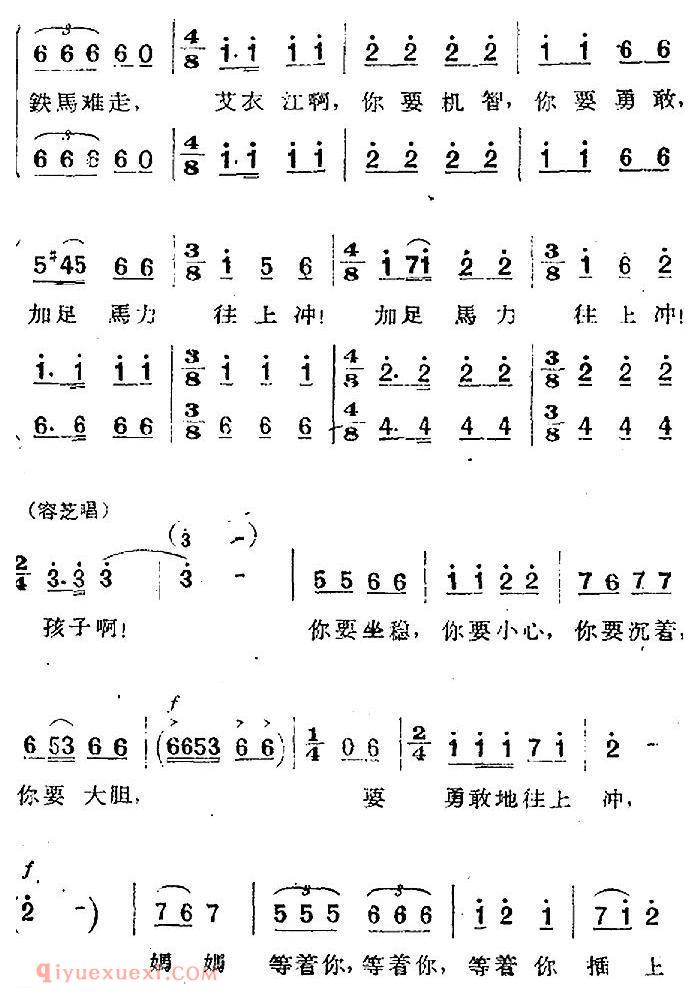 6 6 6 6 0 | 4/8 1. 1 1 1 | 2 2 2 2 | 1 1 6 6
鉄馬难走，艾衣江啊，你要机智，你要勇敢，
6 6 6 6 0 | 4/8 1. 1 1 1 | 2 2 2 2 | 1 1 6 6
5 #4 5 6 6 | 3/8 1 5 6 | 4/8 1 7 1 2 2 | 3/8 1 6 2
加足馬力 往上冲！加足馬力 往上冲！
1. 1 1 1 | 3/8 1 1 1 | 4/8 2. 2 2 2 | 3/8 2 2 2
6. 6 6 6 | 3/8 6 6 6 | 4/8 4. 4 4 4 | 3/8 4 4 4
（容芝唱）
(3 -)
2/4 3. 3 3 | 3 - | 5 5 6 6 | 1 1 2 2 | 7 6 7 7
孩子啊！你要坐稳，你要小心，你要沉着，
f
6 5 3 6 6 | (6 6 5 3 6 6) | 1/4 0 6 | 2/4 1 1 1 7 1 | 2 -
你要大胆，要 勇敢地往上 冲，
f
2 -) | 7 6 7 | 5 5 5 6 6 6 | 1 2 1 | 7 1 2
媽媽 等着你，等着你，等着你 插上
qiyuexuexi.com